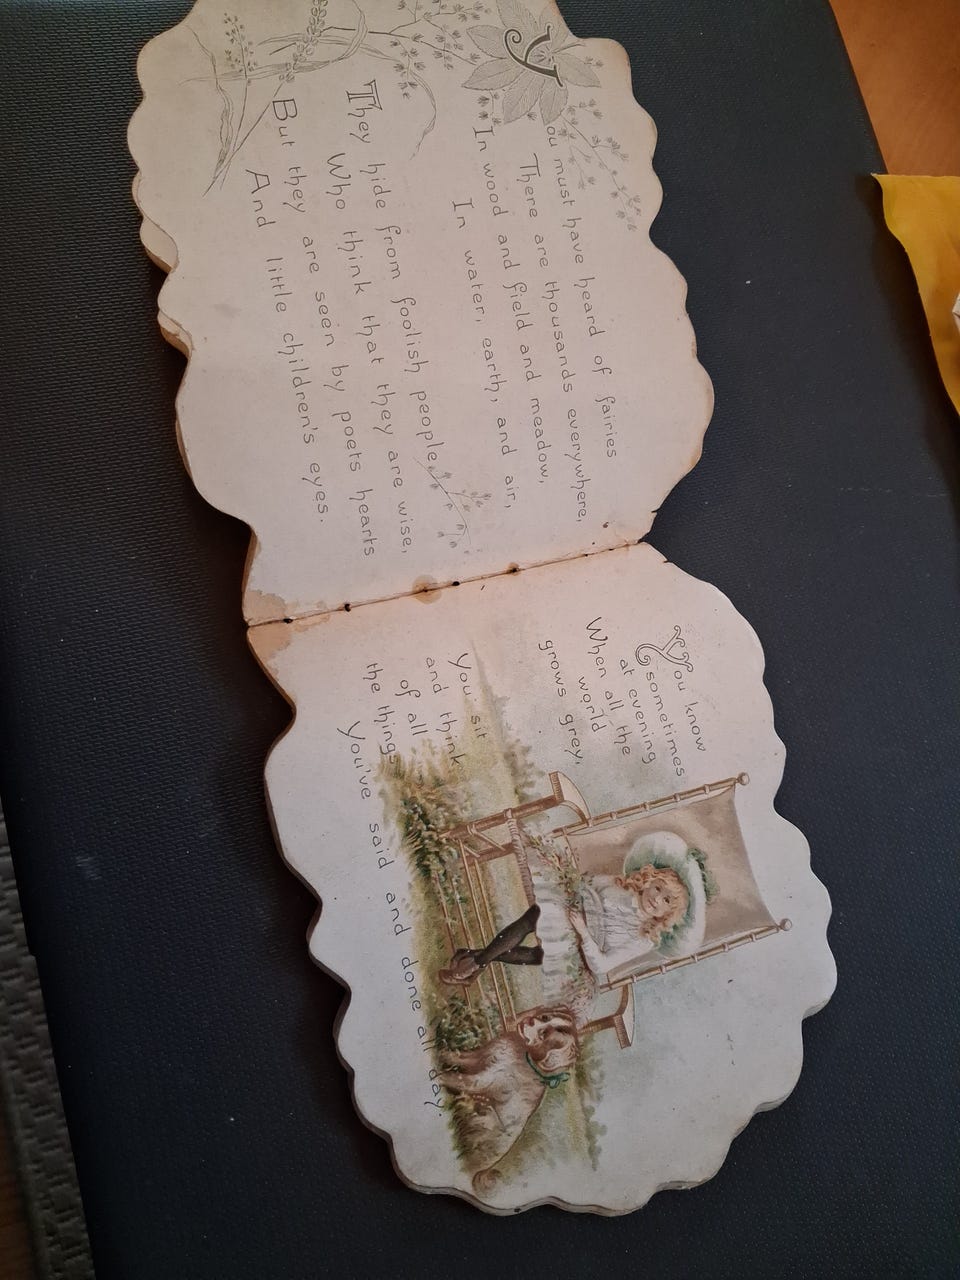 You must have heard of fairies
There are thousands everywhere,
In wood and field and meadow,
In water, earth, and air,
They hide from foolish people
Who think that they are wise,
But they are seen by poets hearts
And little children's eyes.
You know
sometimes
at evening
When all the
world
grows grey,
You sit
and think
of all
the things
You've said and done all day.